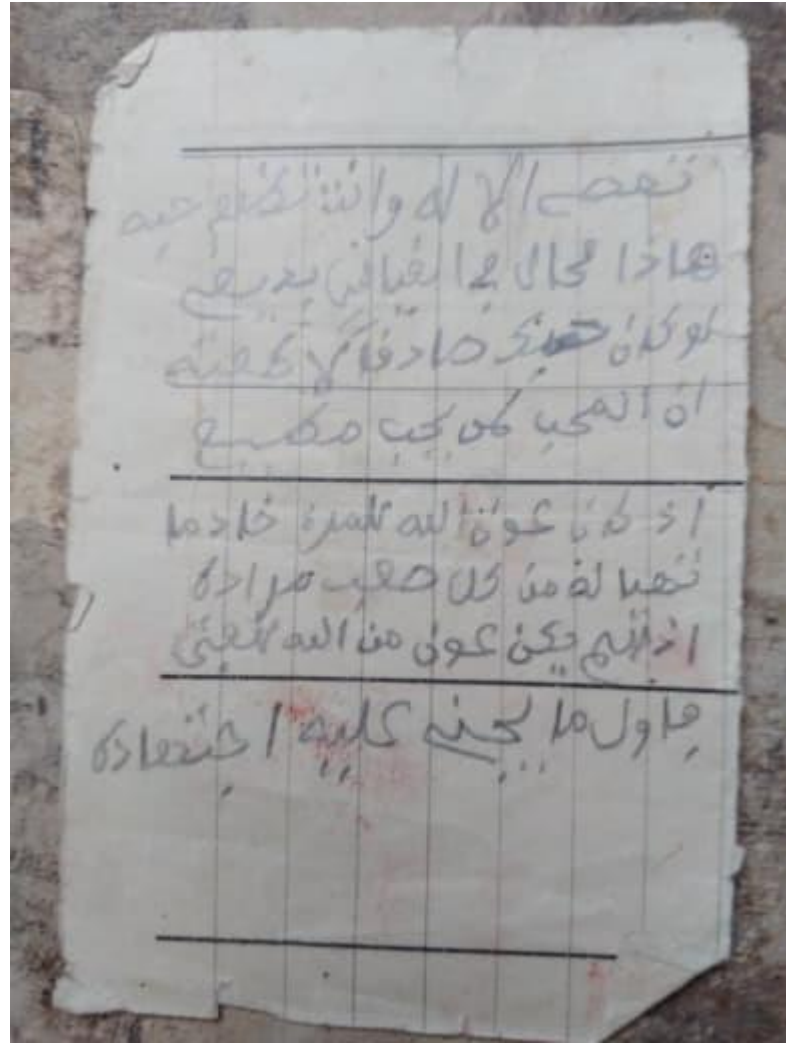 تعصے الا له وانت تظهر حبه
هاذا محال في القياس بديع
لو كان حبك صادفا لا طعته
ان المحب لمن يحب مطيع
اذ كان عون الله للمرء خادما
تهيا له من كل صعب مراده
اذالم يكن عون من الله للفتى
فاول ما يجنے عليه اجتهاده